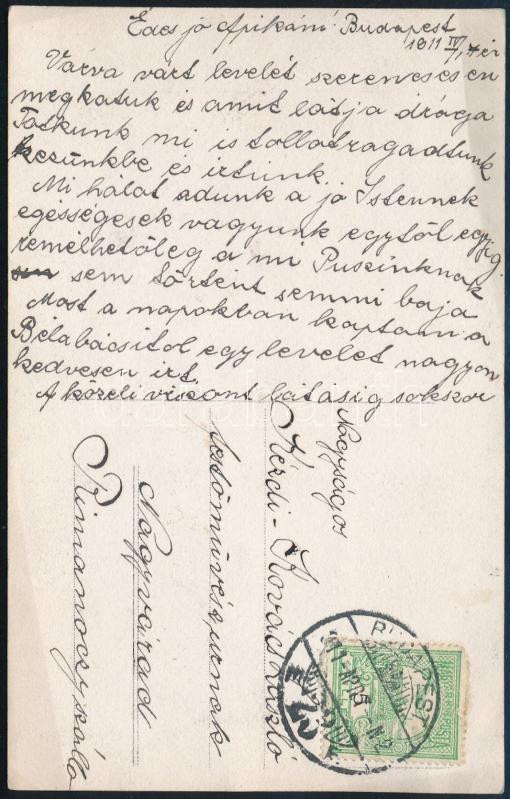 Édes jó Apikám! Budapest
1911 IV/4 én
Várva várt levelét szerencsésen
megkatuk és amit látja drága
Tatkunk mi is tollat ragadtunk
kezünkbe és irtunk.
Mi hálát adunk a jó Istennek
egésségesek vagyunk egytöl egyig
remélhetöleg a mi Puszinknak
sem törtent semmi baja
Most a napokban kaptam a
Bélabácsitol egy levelet nagyon
kedvesen irt.
A közeli viszont látásig sokszor
Nagyságos
Kézdi-Kovács László
festőművészurnek
Nagyvárad
Rimanoczy szálló
BUDAPEST
darabanth